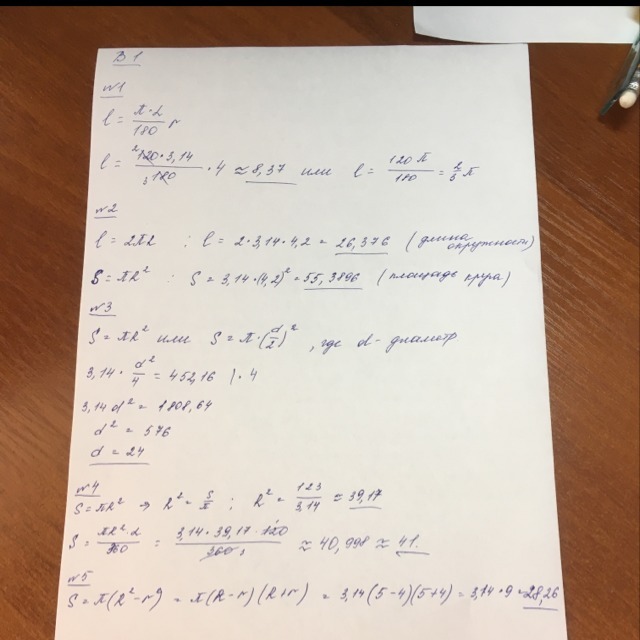 В1
№1
l = π·α/180 r
l = 120·3,14/180 · 4 ≈ 8,37 или l = 120π/180 = 2/3 π
№2
l = 2πR ; l = 2·3,14·4,2 = 26,376 (длина окружности)
S = πR² : S = 3,14·(4,2)² = 55,3896 (площадь круга)
№3
S = πR² или S = π·(d/2)² , где d - диаметр
3,14 · d²/4 = 452,16 | · 4
3,14 d² = 1808,64
d² = 576
d = 24
№4
S = πR² → R² = S/π ; R² = 123/3,14 ≈ 39,17
S = πR²α/360 = 3,14·39,17·120/360 ≈ 40,998 ≈ 41.
№5
S = π(R²-r²) = π(R-r)(R+r) = 3,14(5-4)(5+4) = 3,14·9 = 28,26